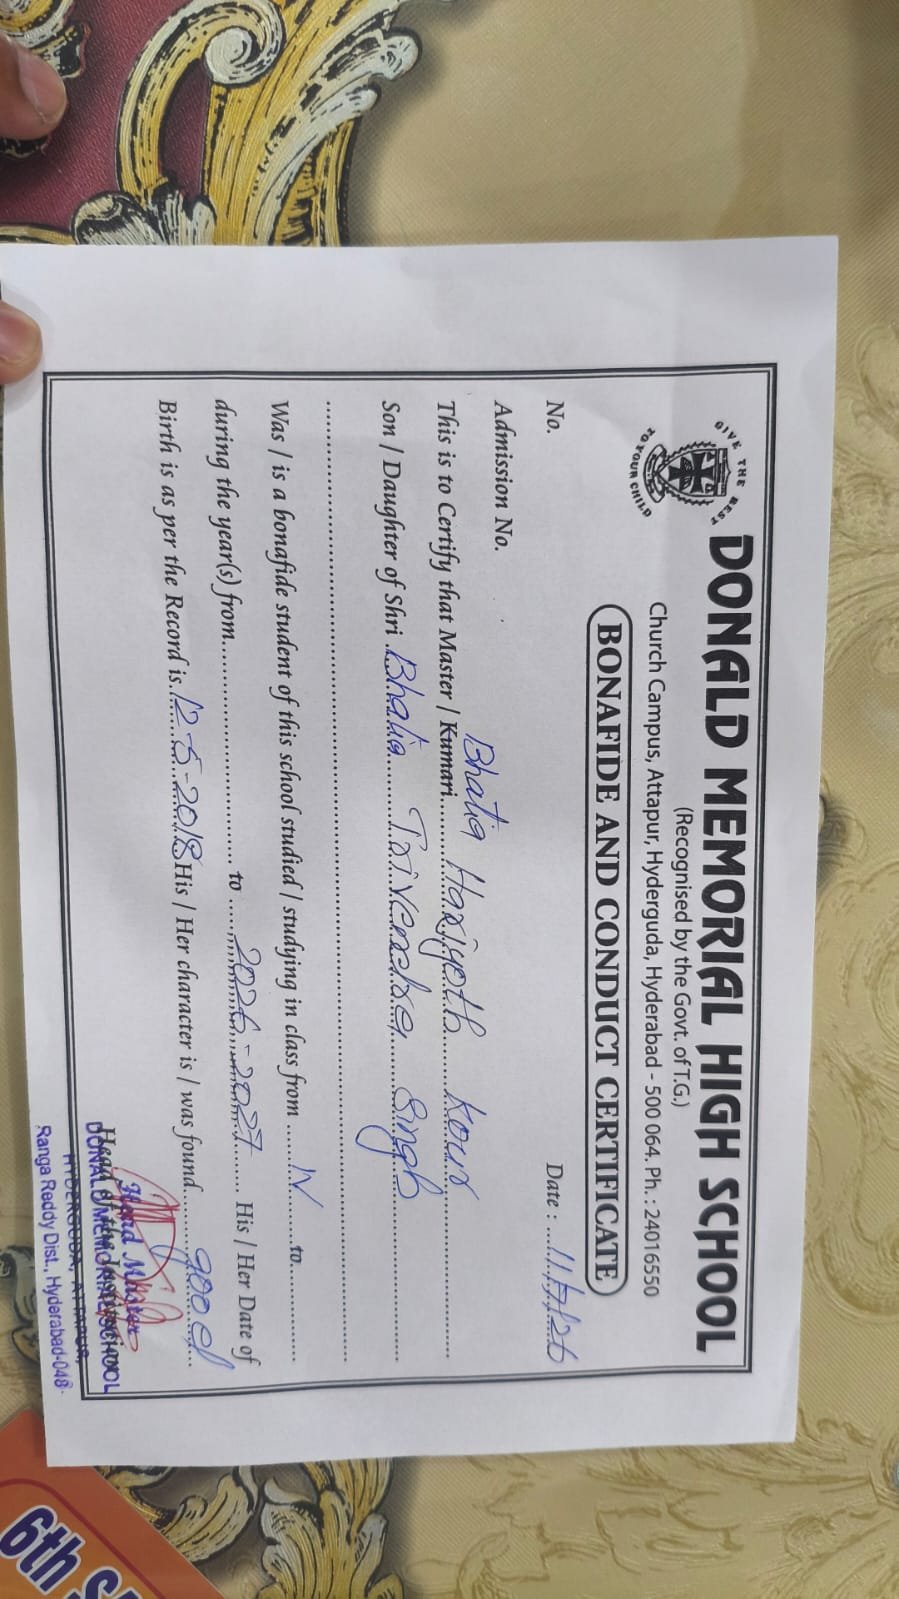 GIVE THE BEST
TO YOUR CHILD
DONALD MEMORIAL HIGH SCHOOL
(Recognised by the Govt. of T.G.)
Church Campus, Attapur, Hyderguda, Hyderabad - 500 064. Ph.: 24016550
BONAFIDE AND CONDUCT CERTIFICATE
No. Date : 11/7/26
Admission No.
This is to Certify that Master / Kumari Bhatia Harjyoth Kour
Son / Daughter of Shri Bhatia Trivender Singh
Was / is a bonafide student of this school studied / studying in class from IV to
during the year(s) from to 2026-2027 His / Her Date of
Birth is as per the Record is 12-5-2018 His / Her character is / was found good
Head Master
Head of the Institution
DONALD MEMORIAL SCHOOL
HYDERGUDA, ATTAPUR,
Ranga Reddy Dist., Hyderabad-048.
6th